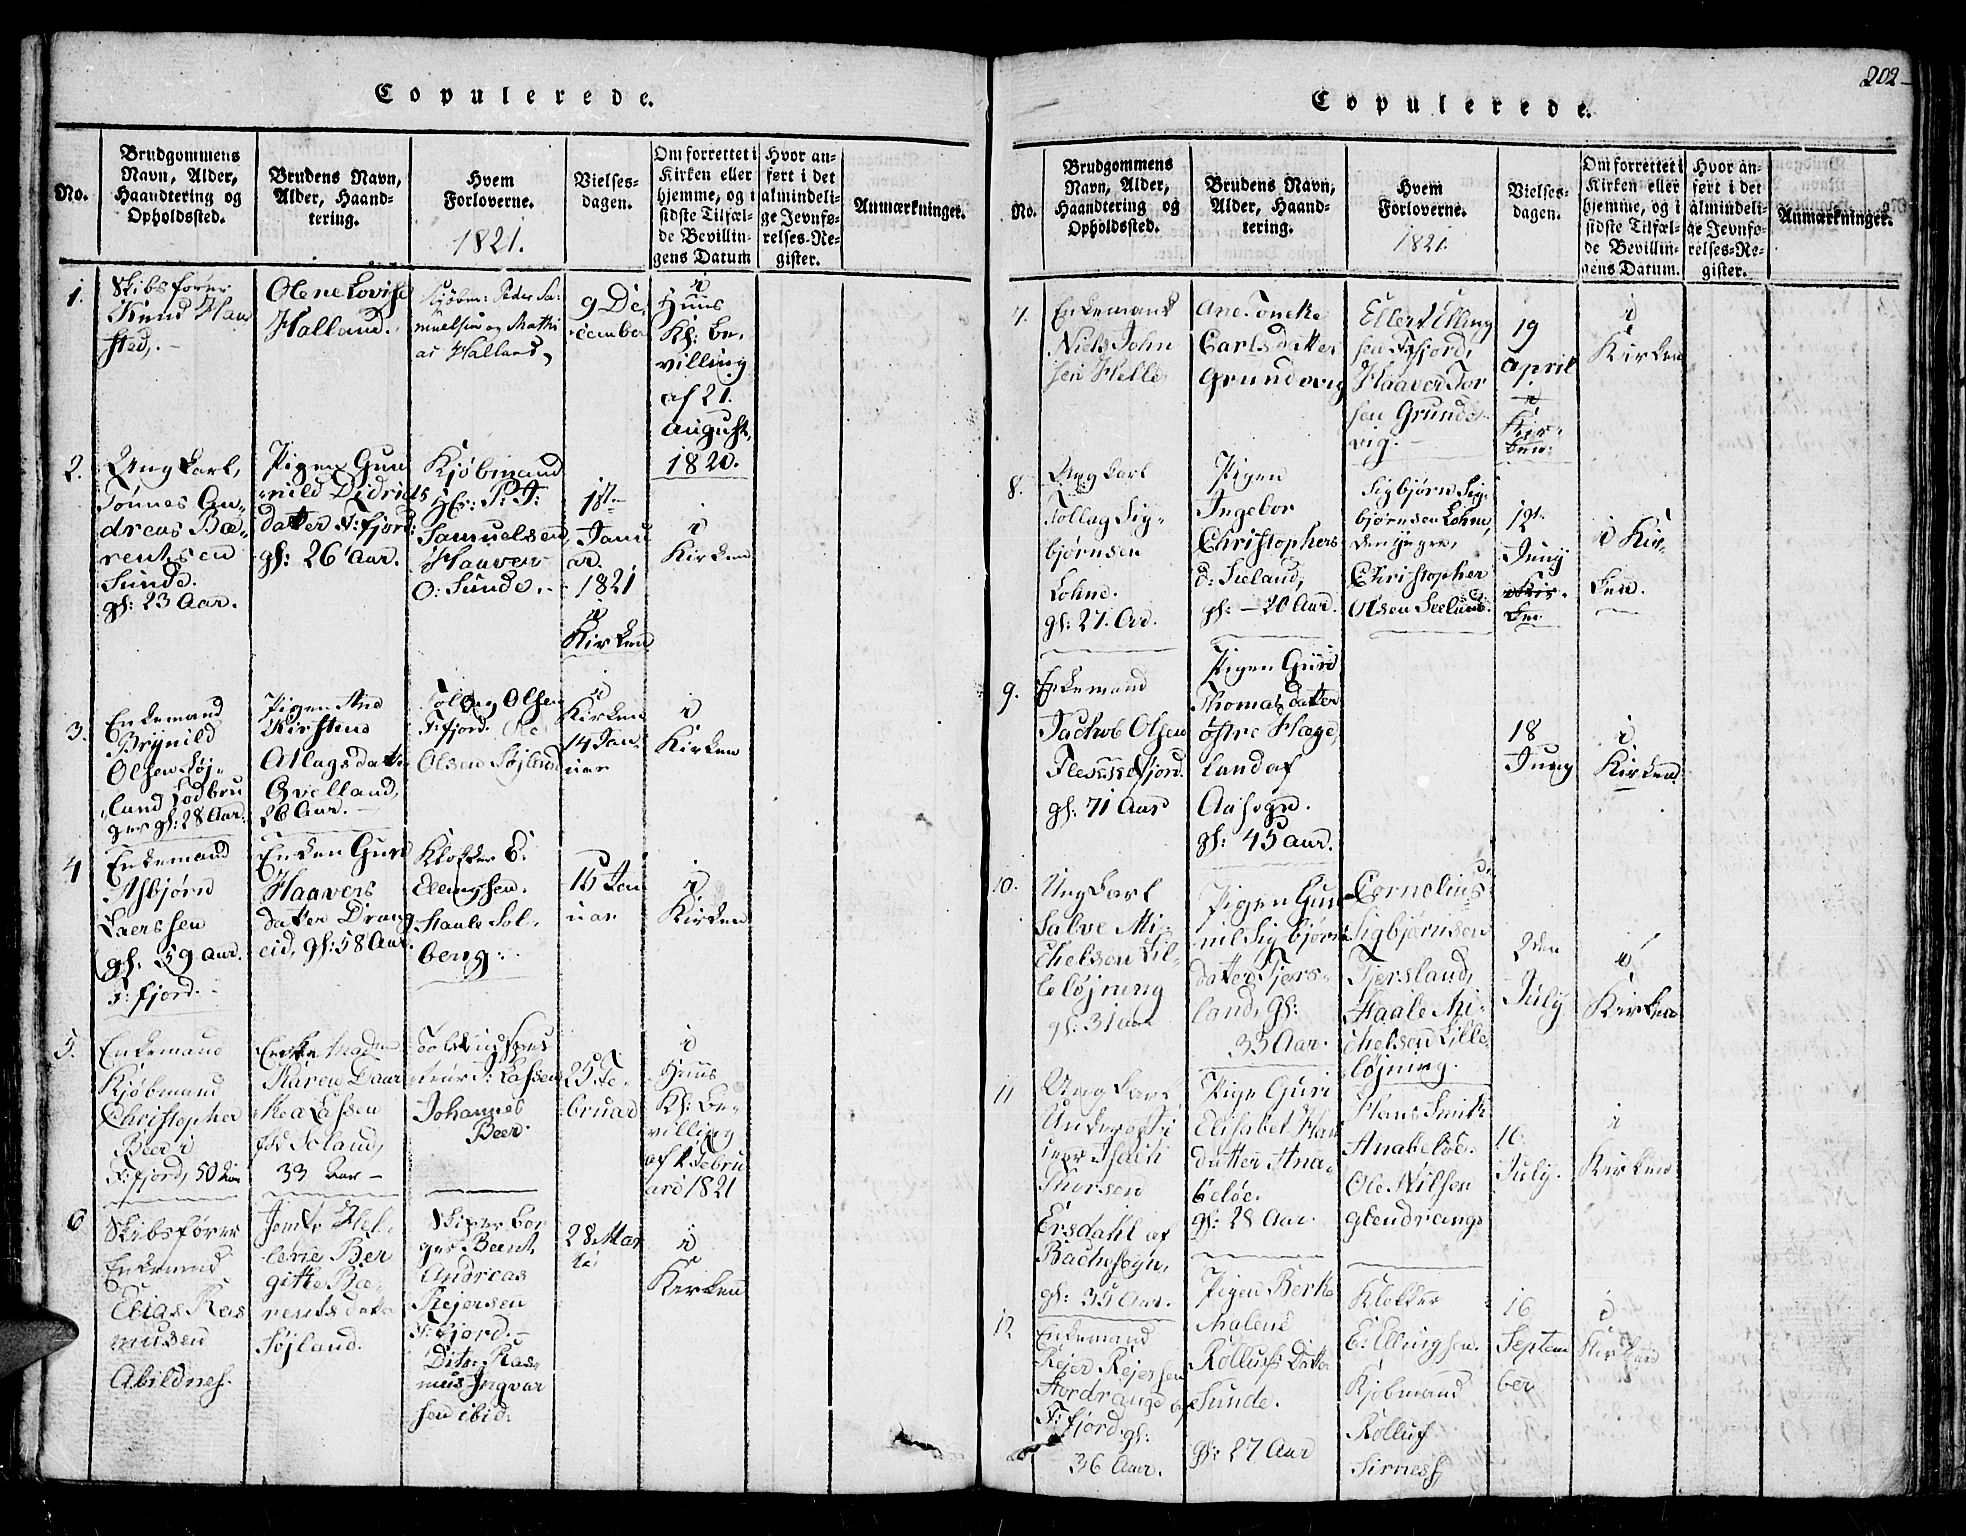 Copulerede.
No.
Brudgommens
Navn, Alder,
Haandtering og
Opholdssted.
Brudens Navn,
Alder, Haand-
tering.
Hvem
Forloverne.
1821.
Vielses-
dagen.
Om forrettet i
Kirken eller
hjemme, og i
sidste Tilfæl-
de Bevillin-
gens Datum
Hvor an-
ført i det
almindeli-
ge Jevnfø-
relses-Re-
gister.
Anmærkninger.
1.
Skibsfører
Knud Han
sted,
Olene Lovise
Halland.
Kjøbm: Peder Sa-
muelsen og Mathi
as Halland,
9 De
cember
i
Huus
Kl: be-
villing
af 21.
august,
1820.
2.
Ung karl,
Tønnes An-
dreas Bæ-
rentsen
Sunde.
gl: 23 Aar.
Pigen Gun
nild Didrichs
datter F:fjord:
gl: 26 Aar.
Kjøbmand
Hr: P: I:
Samuelsen,
Haaver
O: Sunde.
1ste
Janu
ar.
1821
i
Kirken
i
Kirken
3.
Enkemand
Brynild
Olsen Løj-
land Lodbru
ger gl: 28 Aar.
Pigen Ane
Kirstine
Atlagsdatter
Qvelland,
26 Aar.
Tollag Olsen
F:fjord.
Olsen Løjland
i
Kirken
14 Jan
uar
i
Kirken
4
Enkemand
Asbjørn
Laerssen
gl: 59 aar.
F: fjord.
Enken Guri
Haavers
datter Drang
eid, gl: 58 Aar.
Klokker E.
Ellingsen.
Staale Sol-
berg.
15 Jan
uar
i
Kirken
5.
Enkemand
Kjøbmand
Christopher
Beer i
F:fjord, 50 Aar
Enke Madme
Karen Doar
thea Lassen
fød Soland,
33 Aar
Told Inspec
teur J: Lassen
Johannes
Beer.
25 Fe-
bruar
i
Huus
Kl: be-
villing
af 1 Febru
ari 1821
6
Skibsfører
Enkemand
Elias Ras
musen
Abildnes.
Jomfr Hel-
lene Ber
gitte Bæ-
rentsdatter
Løjland.
Skiper bor
ger Beent
Andreas
Rejersen
F:fjord.
Dito Ras-
mus Ingvar
sen ibid:
28 Mar
ti
i
Kirken
202
Copulerede.
No.
Brudgommens
Navn, Alder,
Haandtering og
Opholdssted.
Brudens Navn,
Alder, Haand-
tering.
Hvem
Forloverne.
1821.
Vielses-
dagen.
Om forrettet i
Kirken eller
hjemme, og i
sidste Tilfæl-
de Bevillin-
gens Datum.
Hvor an-
ført i det
almindeli-
ge Jevnfø-
relses-Re-
gister.
Anmærkninger.
7.
Enkemand
Niels John
sen Helle
Ane Toneke
Carlsdatter
Grundevig
Ellert Elling
sen F:fjord,
Haaver Tor
sen Grunde-
vig.
19
April
i
Kir-
ken
i
Kirken
8.
Ung karl
Tollag Sig-
bjørnsen
Lohne.
gl: 27. Ar.
Pigen
Ingebor
Christophers
d: Seeland,
gl: 20 Aar.
Sigbjørn Sig-
bjørnsen Lohne,
den yngre,
Christopher
Olsen Seeland.
12.
Juny
i Kir-
ken.
i Kir-
ken.
9.
Enkemand
Jachob Olsen
Flessesfjord.
gl: 71 Aar
Pigen Guri
Thomasdatter
østre Hæge-
land af
Aasogn.
gl: 45 aar.
18
Juny
i
Kirken
10.
Ung karl
Salve Mi-
chelsen Lil-
leløjning
gl: 31 aar
Pigen Gun
nil Sigbjørns
datter Tjers-
land, gl:
33 Aar.
Cornelius
Sigbjørnsen
Tjersland,
Staale Mi-
chelsen Lille-
løjning.
2den
July
i
Kirken
11
Ung karl
Underoffi
ceer Isach
Thorsen
Ersdahl af
Bachesogn,
gl: 35 Aar.
Pige Guri
Elisabet Han
datter Ana-
beløe.
gl: 28 Aar.
Hans Smith
Anabeløe.
Ole Nilsen
glendrange
16.
July.
i
Kirken
12
Enkemand
Rejer Rejersen
Stordrange af
F:fjord gl:
36 Aar.
Pigen Berte
Malene
Rolluss Datter
Sunde.
gl: 27 Aar
Klokker
E: Ellingsen.
Kjøbmand
Rolluf
Sirnes
16
Septem
ber
i
Kirken